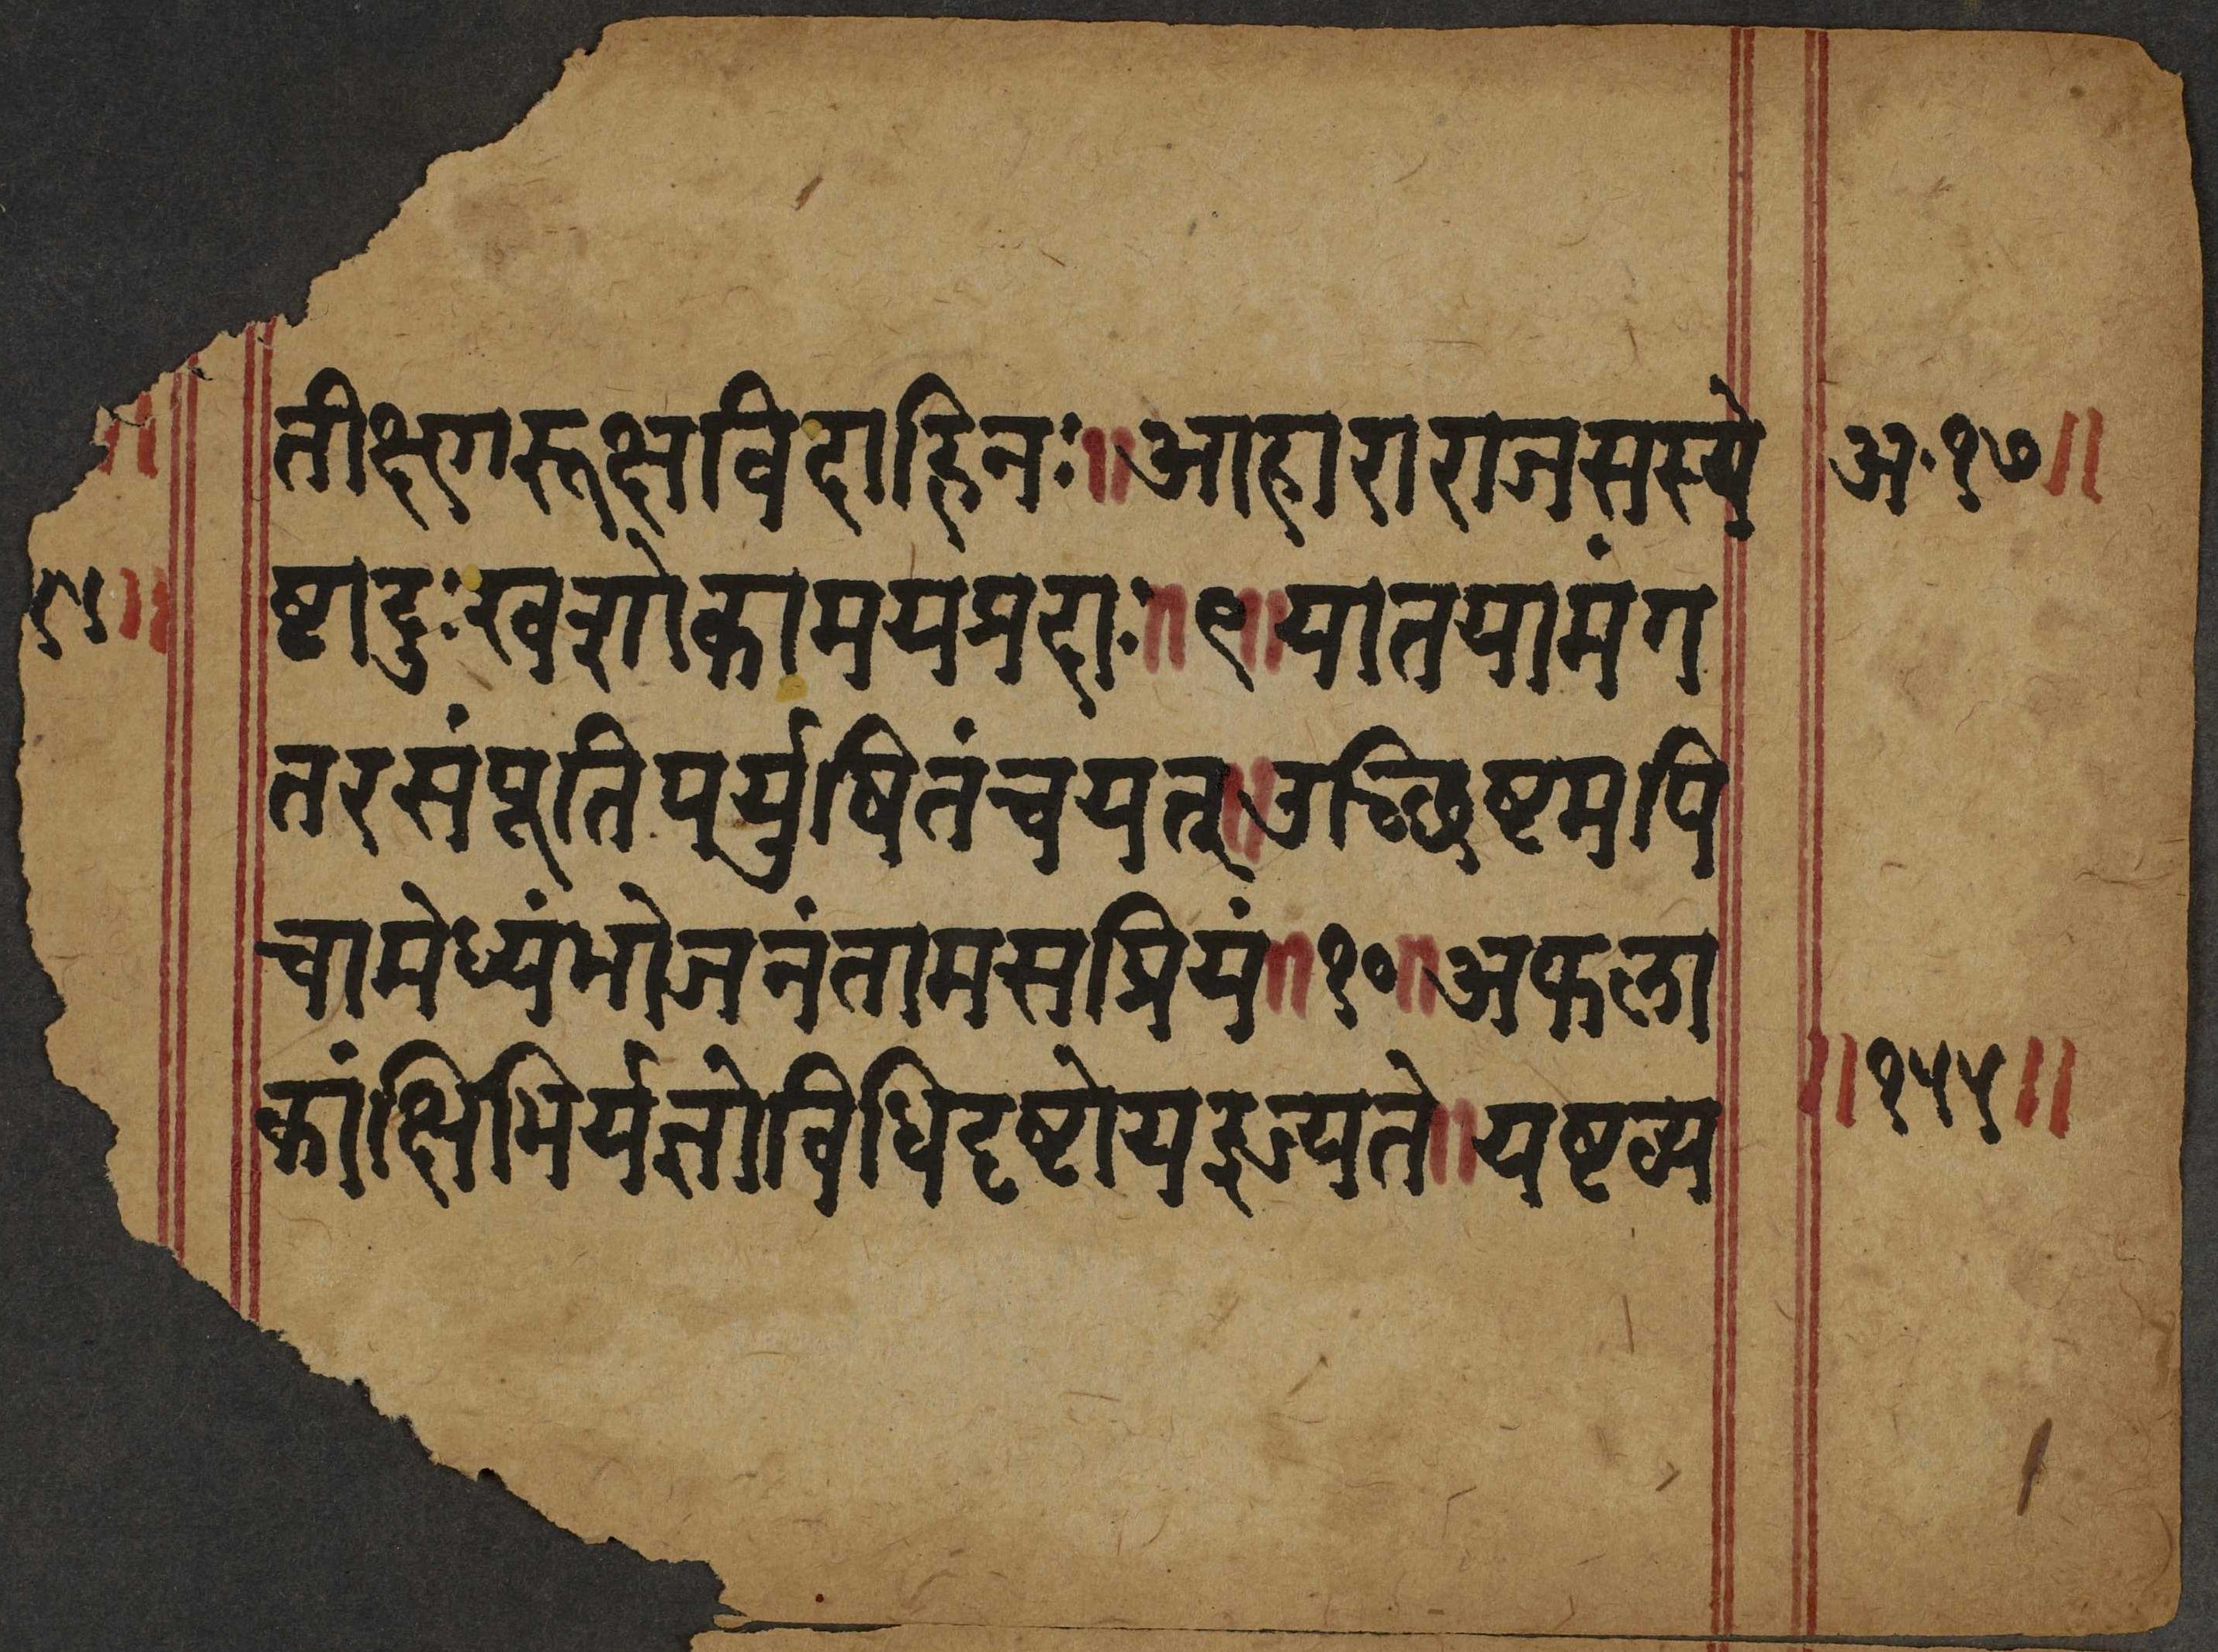 तीक्ष्णरूक्षविदाहिनः॥आहाराराजसस्ये अ॰१७॥
ष्टादुःखशोकामयप्रदाः॥९॥यातयामंग
तरसंपूतिपर्युषितंचयत्॥उच्छिष्टमपि
चामेध्यंभोजनंतामसप्रियं॥१०॥अफला
कांक्षिभिर्यज्ञोविधिदृष्टोयइज्यते॥यष्टव्य
॥१५५॥